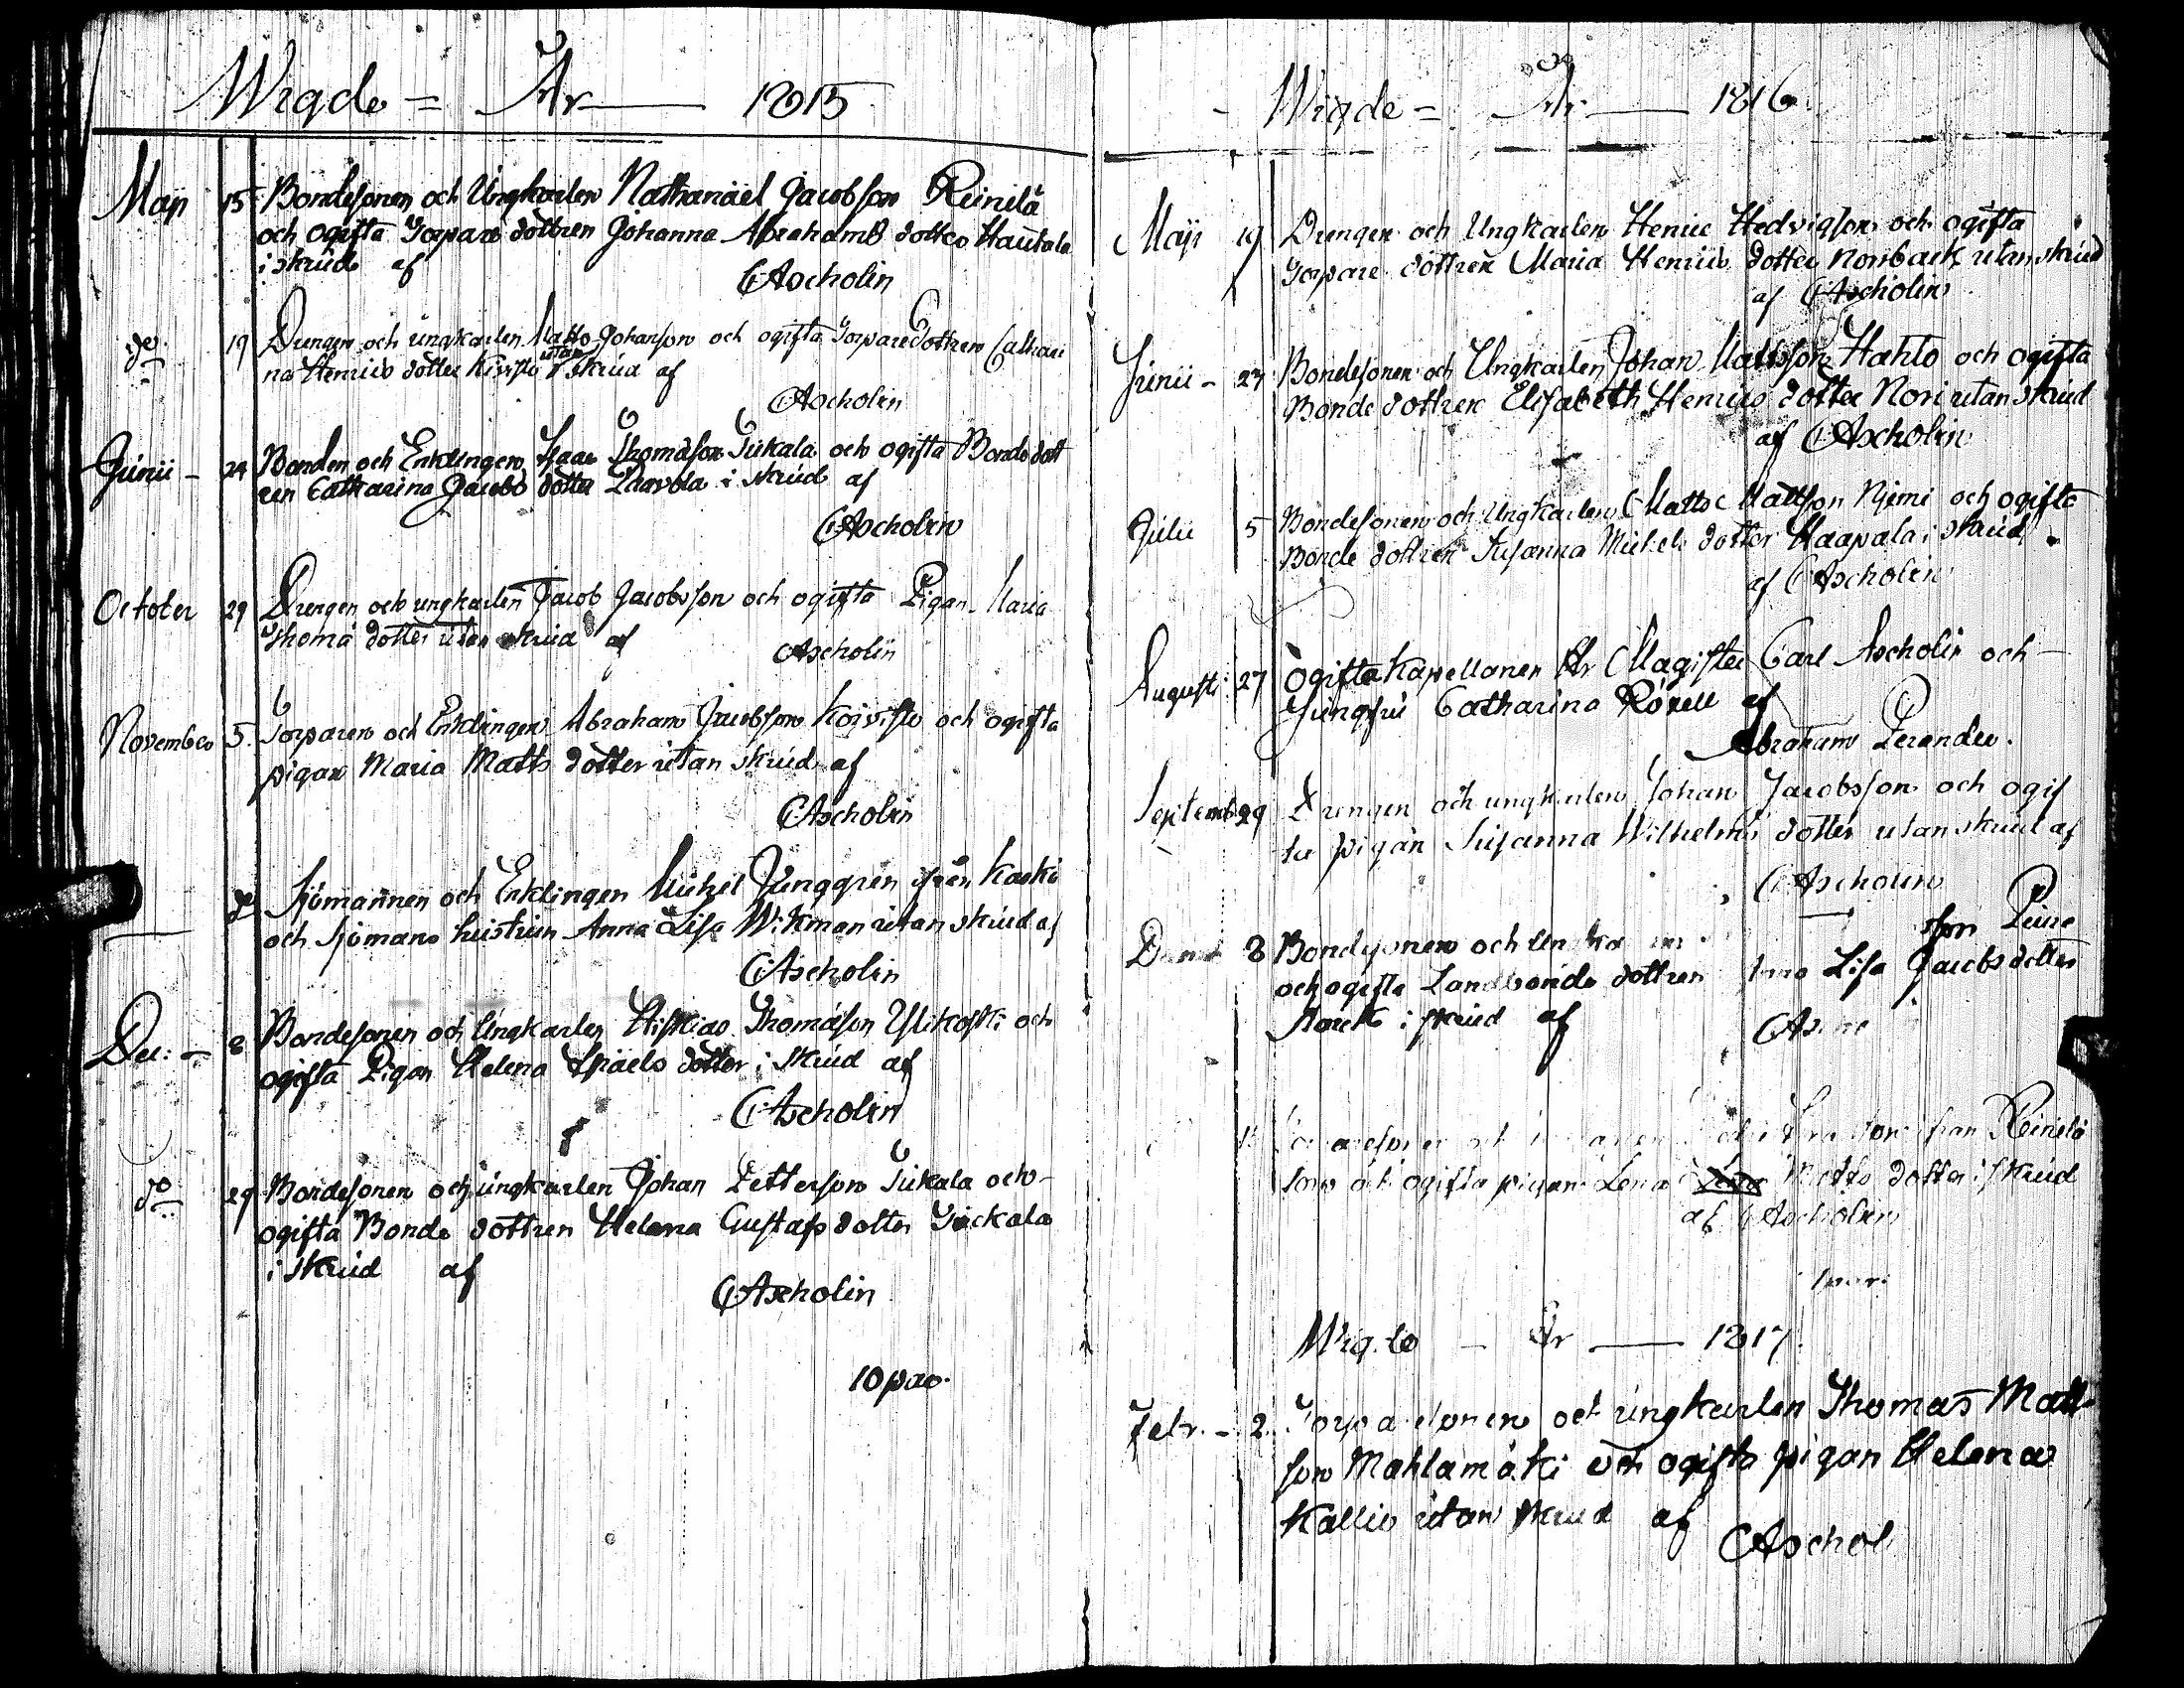 Wigde = År 1815
Maji 15 Bondesonen och Ungkarlen Nathanael Jacobsson Reinilä
och ogifta Torpare dottren Johanna Abrahams dotter Hautala
i skrud af
CAscholin
do 19 Drengen och ungkarlen Matts Johansson och ogifta Torpare dottren Cathari
na Henrics dotter Kivistö utan skrud af
CAscholin
Junii - 24 Bonden och Enklingen Isaac Thomasson Tiukala och ogifta Bonde dott
ren Catharina Jacobs dotter Paavola i skrud af
CAscholin
October 29 Drengen och ungkarlen Jacob Jacobsson och ogifta Pigan Maria
Thomæ dotter utan skrud af
CAscholin
November 5. Torparen och Enklingen Abraham Jacobsson Koivisto och ogifta
pigan Maria Matts dotter utan skrud af
CAscholin
do Sjömannen och Enklingen Michel Ljunggren ifrån Kaskö
och Sjömans hustrun Anna Lisa Wikman utan skrud af
CAscholin
Dec: - 8 Bondesonen och Ungkarlen Hiskias Thomasson Ylikoski och
ogifta Pigan Helena Israels dotter i skrud af
CAscholin
do 29 Bondesonen och ungkarlen Johan Pettersson Tiukala och
ogifta Bonde dottren Helena Gustafs dotter Tiuckala
i skrud af
CAscholin
10 par.
Wigde = År 1816
Maji 19 Drengen och Ungkarlen Henric Hedvigson och ogifta
Torpare dottren Maria Henrics dotter Norrback utan skrud
af CAscholin
Junii - 27 Bondesonen och Ungkarlen Johan Mattsson Hahto och ogifta
Bonde dottren Elisabeth Henrics dotter Nori utan skrud
af CAscholin
Julii 5 Bondesonen och Ungkarlen Matts Mattsson Njemi och ogifta
Bonde dottren Susanna Michels dotter Haapala i skrud
af CAscholin
Augusti 27 Ogifta Kapellanen Hr Magister Carl Ascholin och
Jungfru Catharina Roxell af
Abraham Perander.
Septemb: 29 Drengen och ungkarlen Johan Jacobsson och ogif
ta pigan Susanna Wilhelms dotter utan skrud af
CAscholin
8 Bondesonen och
och ogifta Landbonde dottren Lisa Jacobs dotter
i skrud af
från Reinilä
och ogifta pigan Lena Matts dotter i skrud
af CAscholin
Wigde - År 1817.
Febr. - 2. och ungkarlen Thomas Matt
son Mahlamäki och ogifta pigan Helena
Kallio utan skrud af
CAschol